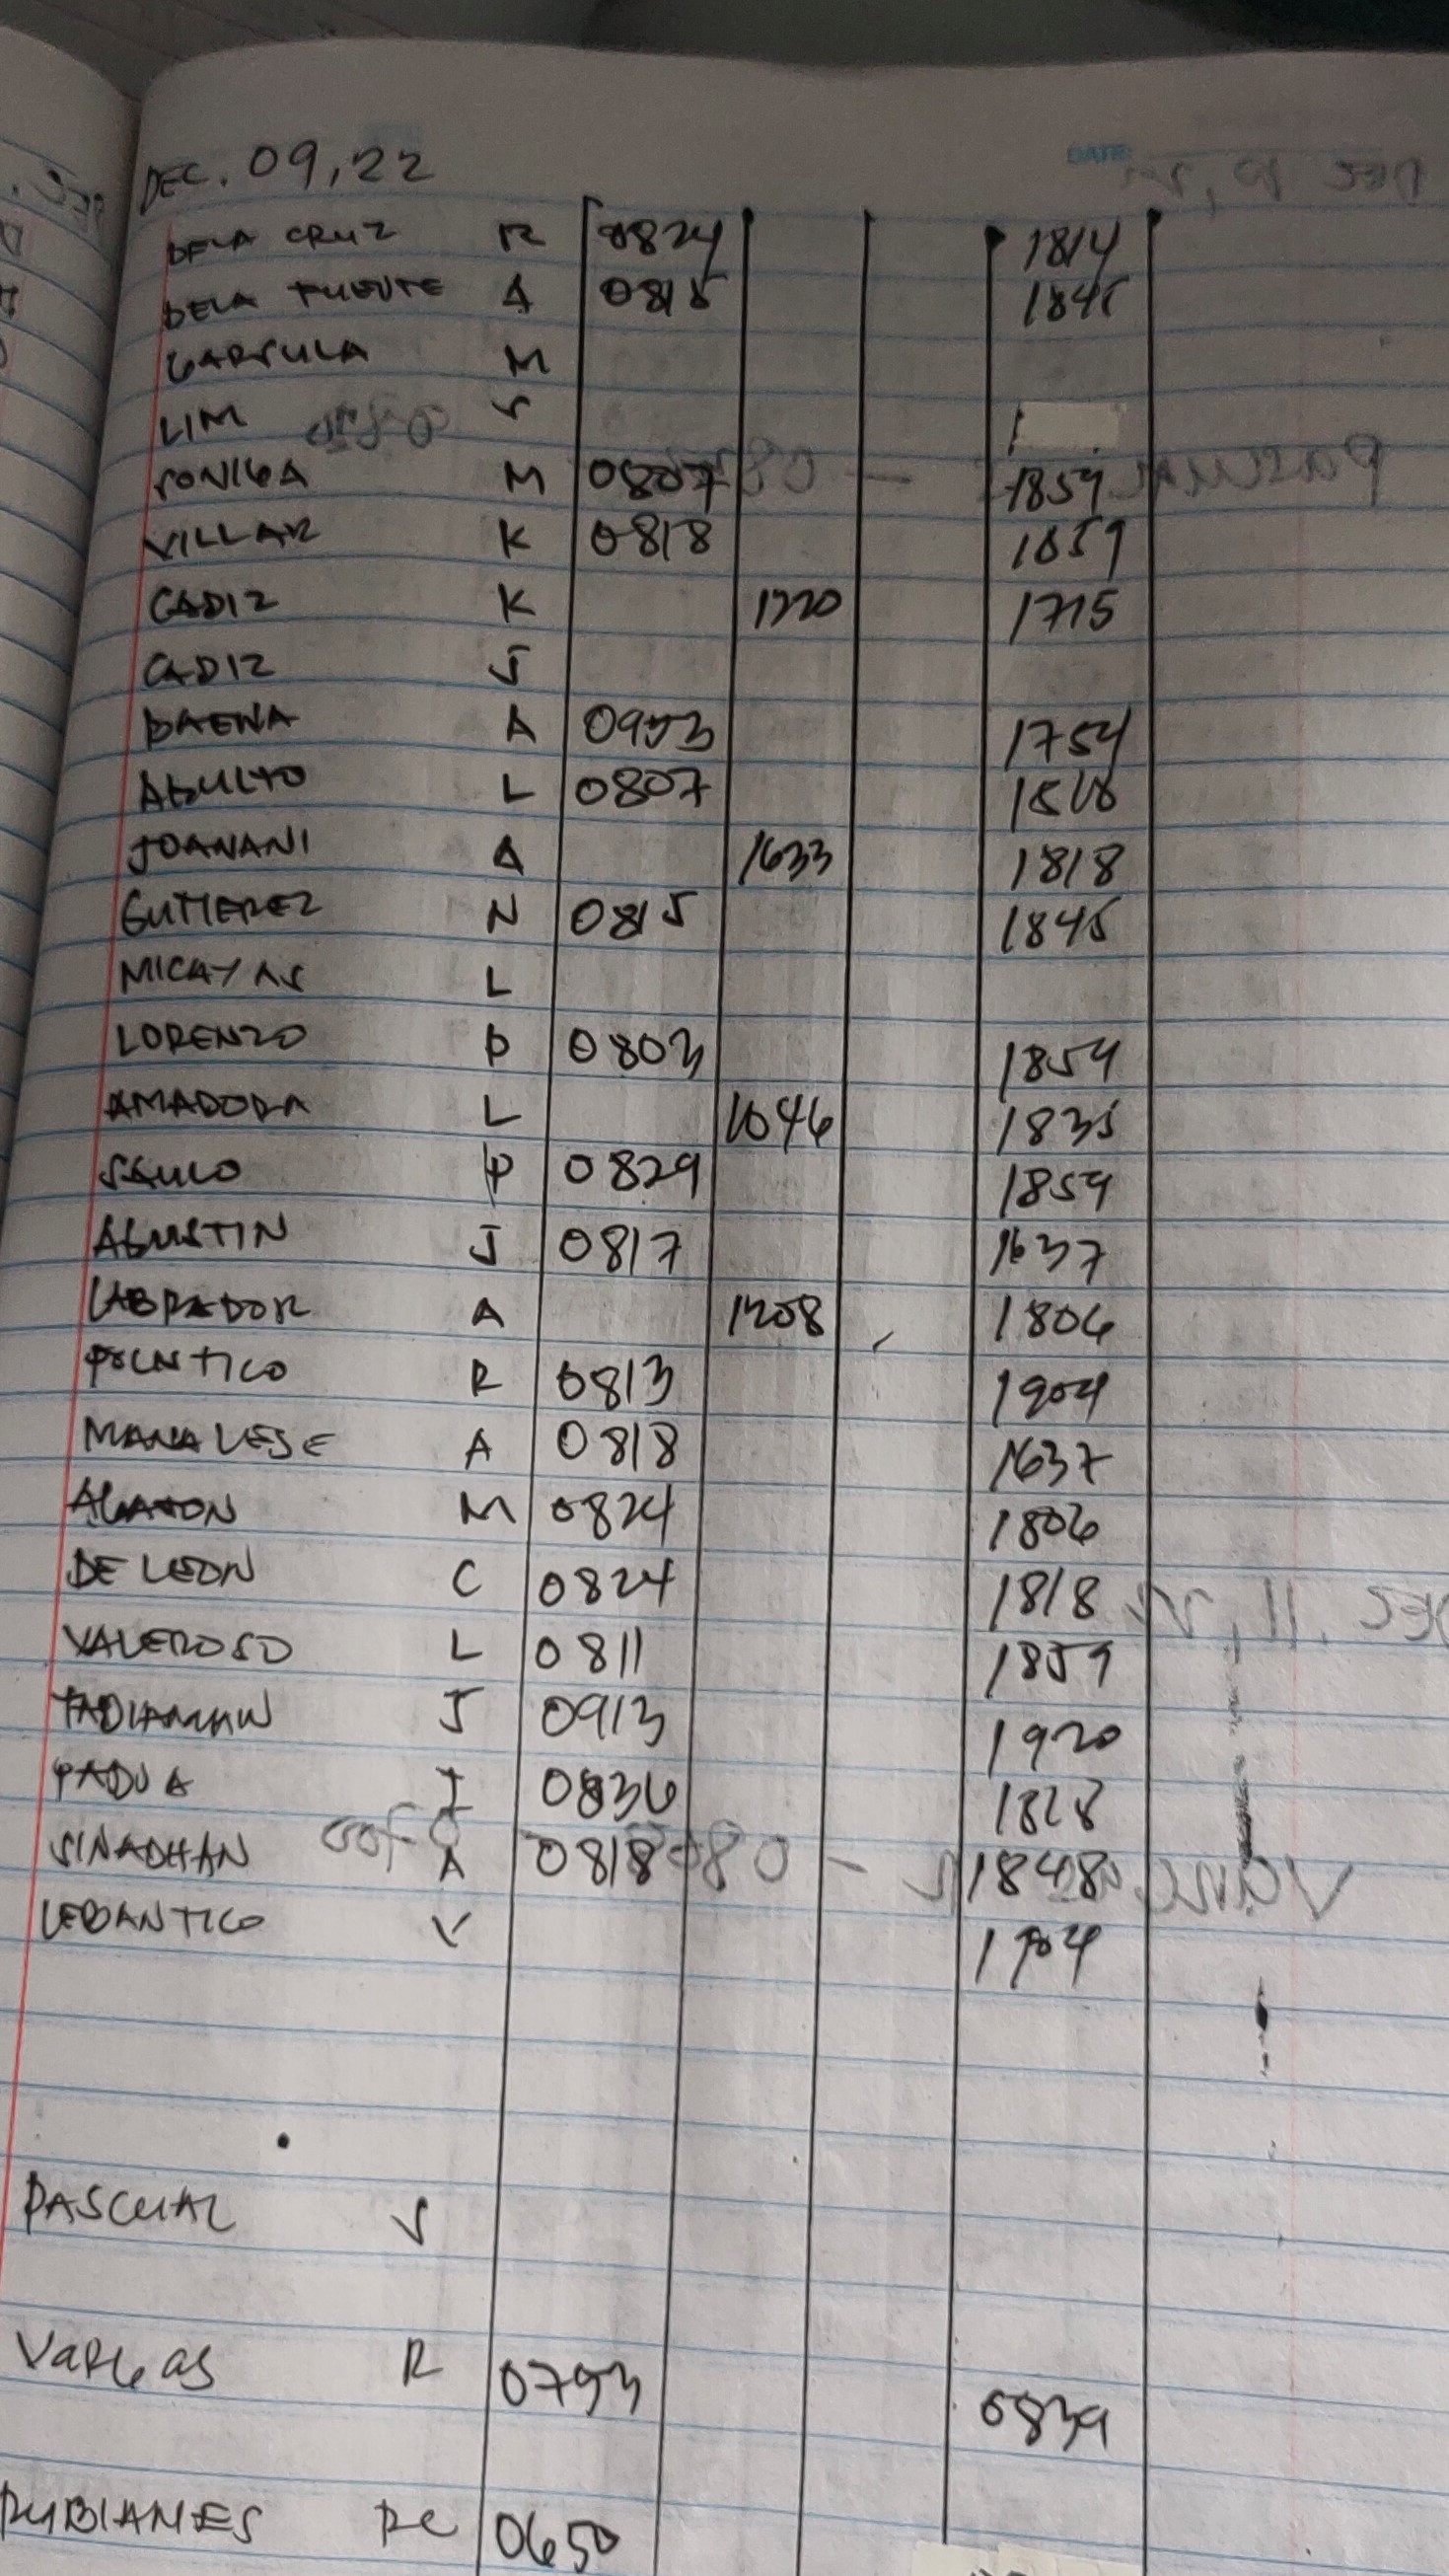 DEC. 09, 22
DATE:
DELA CRUZ R 0824 1814
DELA FUENTE A 0815 1845
GARSULA M
LIM S
SONIGA M 0807 1859
VILLAR K 0818 1859
CADIZ K 1220 1715
CADIZ J
BAENA A 0953 1754
ABULTO L 0807
JOANANI A 1633 1818
GUTIEREZ N 0815 1845
MICAYAS L
LORENZO D 0803 1859
AMADORA L 1046 1835
SAULO P 0829 1859
AGUSTIN J 0817 1637
LABRADOR A 1208 1806
R 0813 1904
MANALESE A 0818 1637
M 0824 1806
DE LEON C 0824 1818
VALEROSO L 0811 1859
J 0913 1920
PADUA I 0836 1828
SINADHAN A 0818 1848
LEDANTICO V 1904
PASCUAL S
VARGAS R 0753 0839
RUBIANES RC 0650